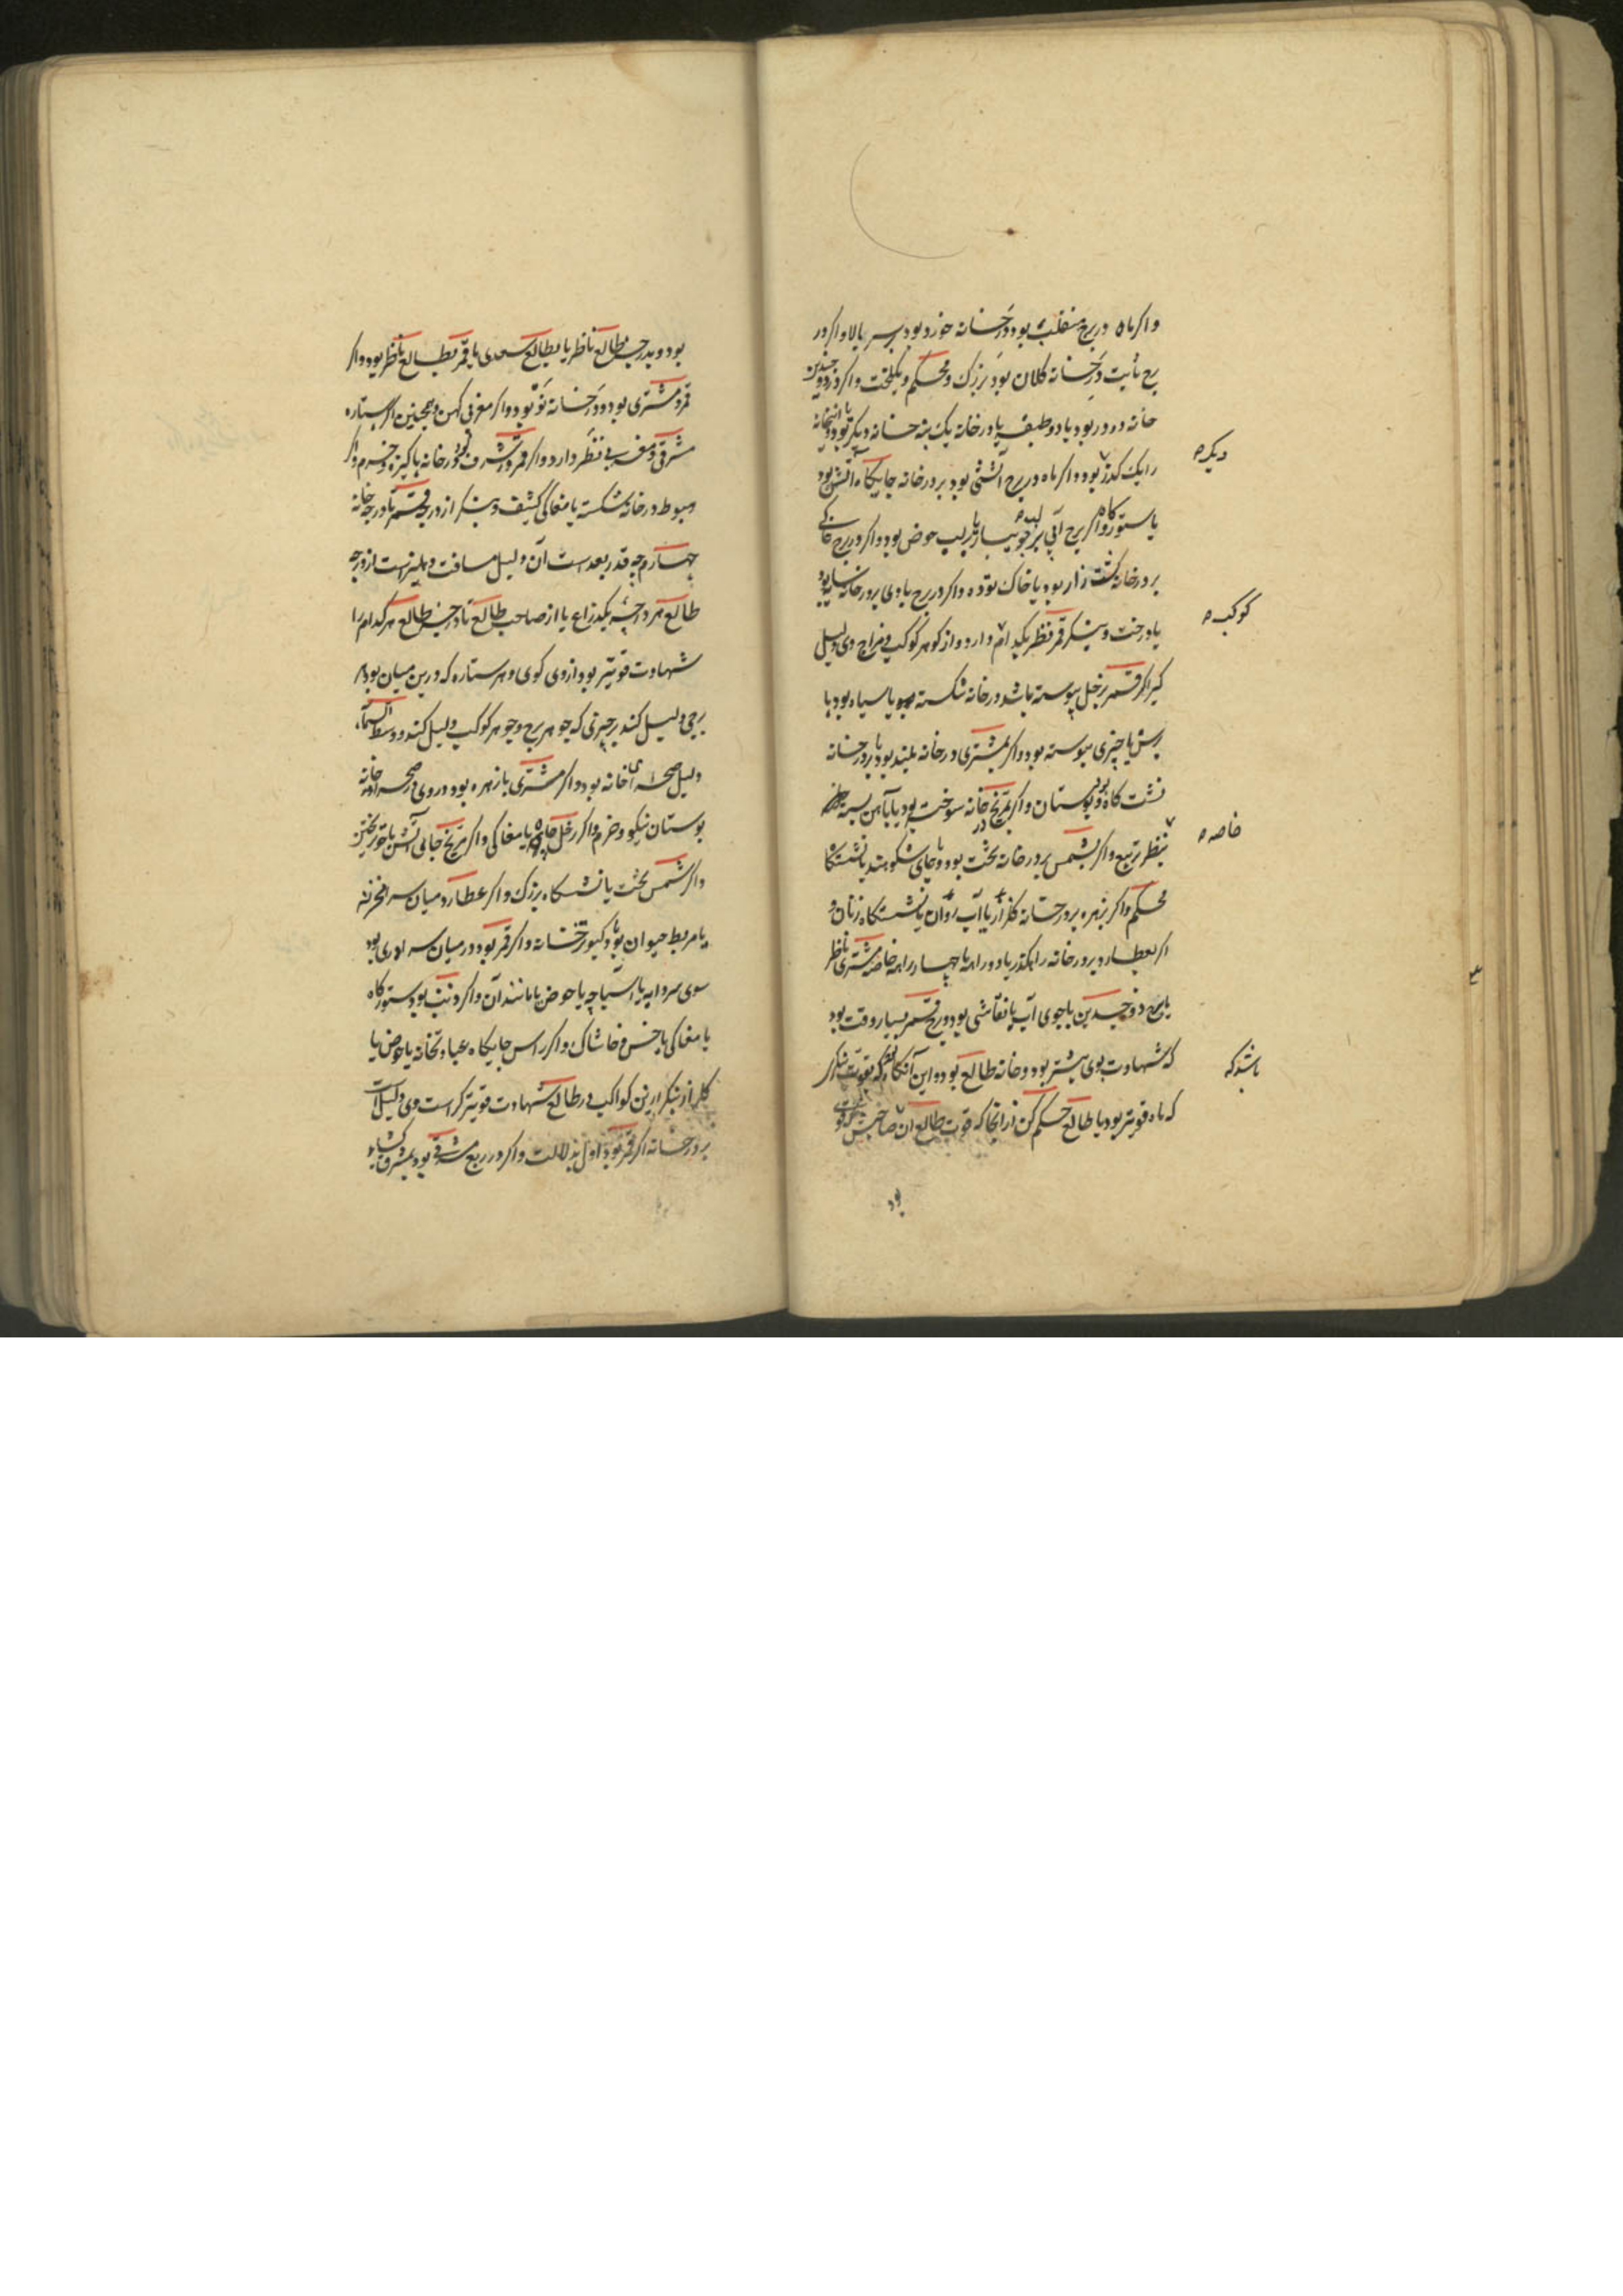 واکر ماه در برج منقلب بود در خانه خورد بود بسر بالا و اکر در
برج ثابت در خانه کلان بود بزرک و محکم و یکلخت واکر ذو جسدین
خانه دو در بود یا دو طبقه یا در خانه یک بنه خانه دیکر بود
را یک کذر بود واکر ماه در برج آتشی بود بر در خانه جایکاه آتش بود
دیکر
یا ستورکاه واکر برج آبی بر جویبار یا بر لب حوض بود واکر در برج خاکی
بر در خانه کشت زار بود یا خاک توده واکر در برج بادی بر در خانه
یا درخت و بنکر قمر نظر بکدام دارد و از کوهر کوکب و مزاج وی دلیل
کوکب
کیر اکر قمر بزحل پیوسته باشد در خانه شکسته بود یا سیاه بود یا
برش یا چیزی پیوسته بود واکر بمشتری در خانه بلند بود یا بر در خانه
نشت کاه بود و بوستان واکر بمریخ در خانه سوخته بود یا بآهن بسته
خاصه
بنظر تربیع واکر بشمس بر در خانه تخت بود و یا جای شکوهمند یا نشستکاه
محکم واکر بزهره بر در خانه کلزار یا آب روان یا نشستکاه زنان و
اکر بعطارد بر در خانه راهکذر یا دو راهه یا چهار راهه خاصه مشتری ناظر
یا برج ذو جسدین یا جوی آب یا نقاشی بود و برج قمر بسیار وقت بود
که شهادت بوی بیشتر بود و خانه طالع بود و این آنکاه که بقوت بنکر
باشد که
که ماه قویتر بود یا طالع حکم کن از آنجا که قوت طالع آن
بود
بود و بدرجه طالع ناظر یا بطالع سعدی یا قمر بطالع ناظر بود واکر
قمر و مشتری بود در خانه نو بود واکر مغربی کهن و همچنین اکر ستاره
مشرقی و مغربی نظر دارد واکر قمر در شرف بود در خانه پاکیزه و خرم واکر
هبوط در خانه شکسته یا مغاکی کثیف و بنکر از درجه قمر تا درجه خانه
چهارم چه قدر بعد است آن دلیل مسافت دهلیز است از درجه
طالع هر درجه یکذراع یا از صاحب طالع تا درجه طالع هر کدام را
شهادت قویتر بود از وی کوی و هر ستاره که درین میان بود
برجی دلیل کند بر چیزی که جوهر برج و جوهر کوکب دلیل کند و وسط السما
دلیل صحرای خانه بود واکر مشتری یا زهره بود در وی در صحرا خانه
بوستان نیکو و خرم واکر زحل چاه یا مغاکی واکر مریخ جای آتش یا خون ریختن
واکر شمس تخت یا نشستکاه بزرک واکر عطارد میان سرا
یا مربط حیوان بود یا کبوترخانه واکر قمر بود در میان سرا
سوی سردابه یا آسیاچه یا حوض یا مانند آن واکر ذنب بود ستورکاه
یا مغاکی یا خس و خاشاک واکر راس جایکاه عبادتخانه یا حوض یا
کلزار بنکر ازین کواکب در طالع شهادت قویتر کراست وی دلیل است
بر در خانه اکر قمر بود اول بدلالت واکر در ربع مشرقی بود بمشرق